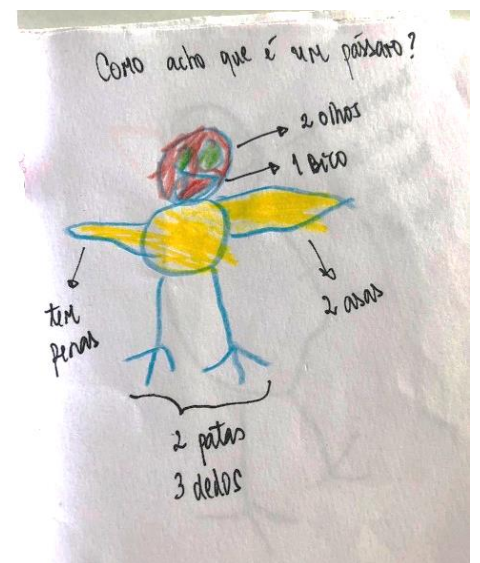 Como acho que é um pássaro?
2 olhos
1 Bico
tem
penas
2 asas
2 patas
3 dedos